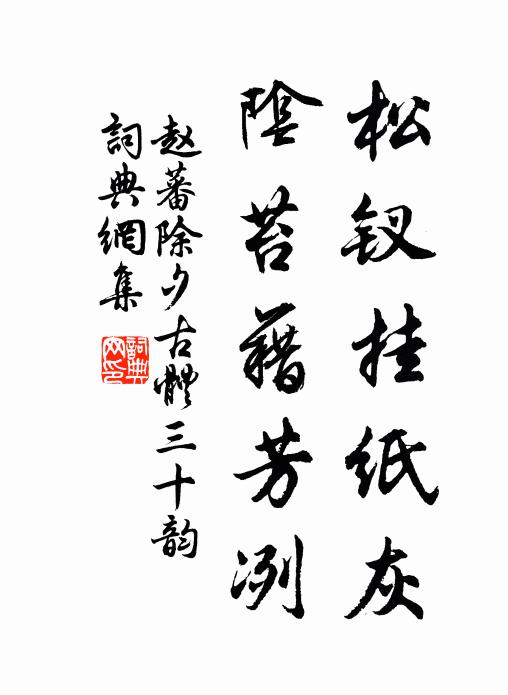 松钗挂纸灰
陰苔藉芳冽
赵蕃除夕古體三十韵
詞典網集
詞典網印